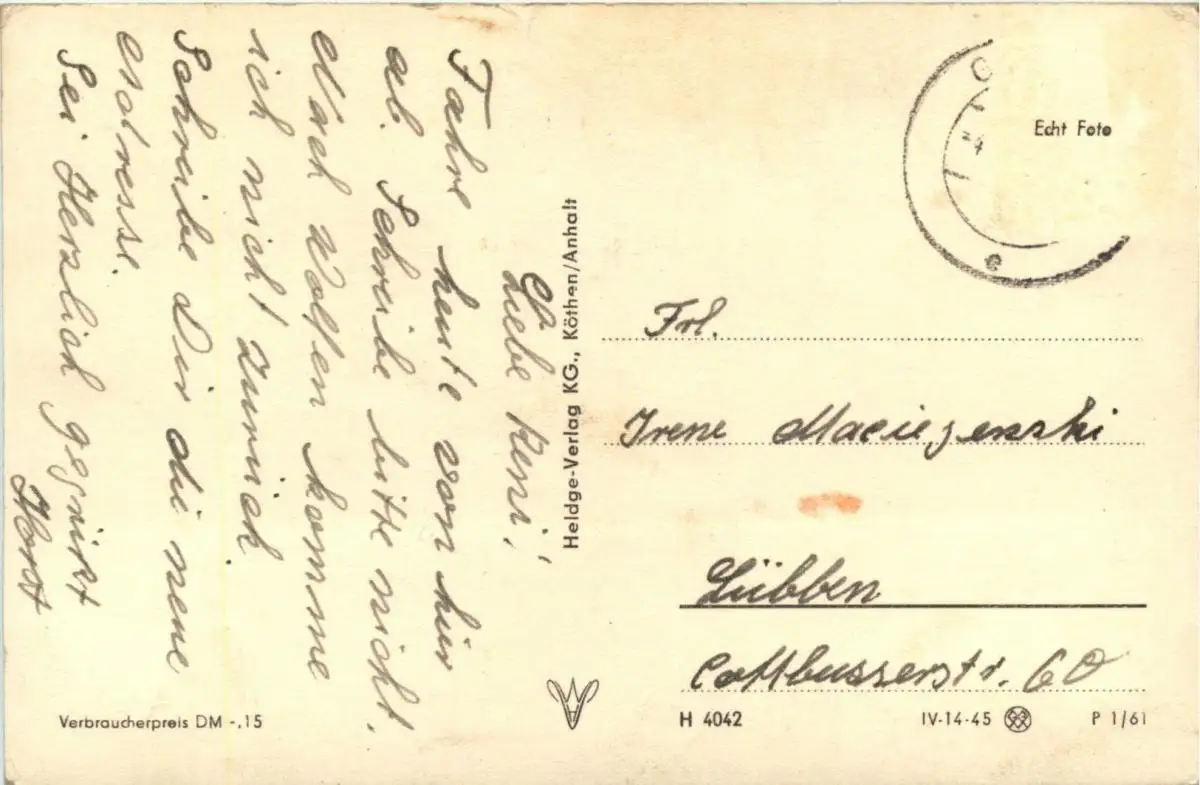 Liebe Reni!
Fahre heute von hier
ab. Schreibe bitte nicht.
Nach Wolfen komme
ich nicht zurück.
Schreibe Dir die neue
Adresse.
Sei Herzlich gegrüßt
Horst
Heldge-Verlag KG., Köthen/Anhalt
Echt Foto
Frl.
Irene
Lübben
Cottbusserstr. 60
Verbraucherpreis DM -.15
H 4042
IV-14-45
P 1/61